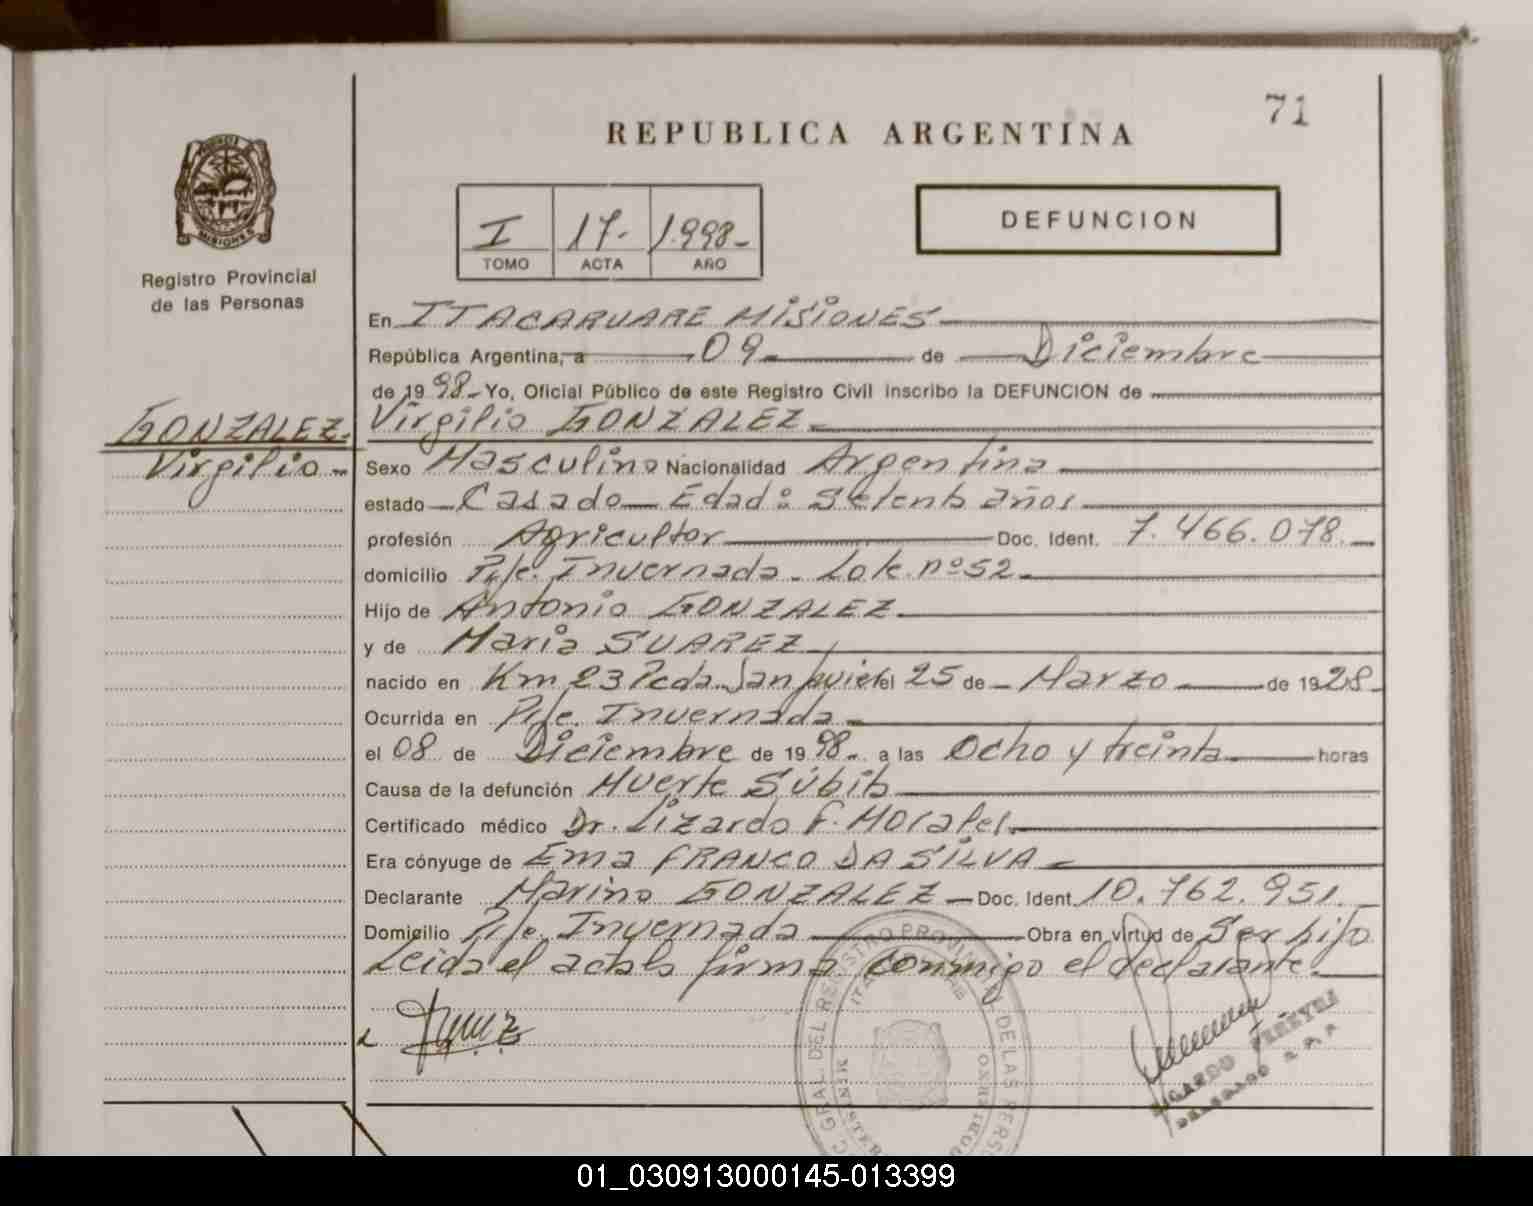 71
REPUBLICA ARGENTINA
MISIONES
Registro Provincial
de las Personas
I 17- 1.998-
TOMO ACTA AÑO
DEFUNCION
En ITACARUARE MISIONES
República Argentina, a 09 de Diciembre
de 1998- Yo, Oficial Público de este Registro Civil inscribo la DEFUNCION de
GONZALEZ.
Virgilio
Virgilio GONZALEZ
Sexo Masculino Nacionalidad Argentina
estado Casado Edad: Setenta años
profesión Agricultor Doc. Ident. 7.466.078.
domicilio Pje. Invernada Lote nº 52
Hijo de Antonio GONZALEZ
y de Maria SUAREZ
nacido en Km 23 Pcda. San Javier el 25 de Marzo de 1928
Ocurrida en Pje. Invernada
el 08 de Diciembre de 1998 a las Ocho y treinta horas
Causa de la defunción Muerte Súbita
Certificado médico Dr. Lizardo F. Morales
Era cónyuge de Ema FRANCO DA SILVA
Declarante Marino GONZALEZ Doc. Ident. 10.762.951.
Domicilio Pje. Invernada Obra en virtud de Ser hijo
Leida el acta la firma conmigo el declarante.
GRAL. DEL REGISTRO PROVINCIAL DE LAS PERS
RICARDO PEREYRA
DELEGADO R.P.P.
01_030913000145-013399